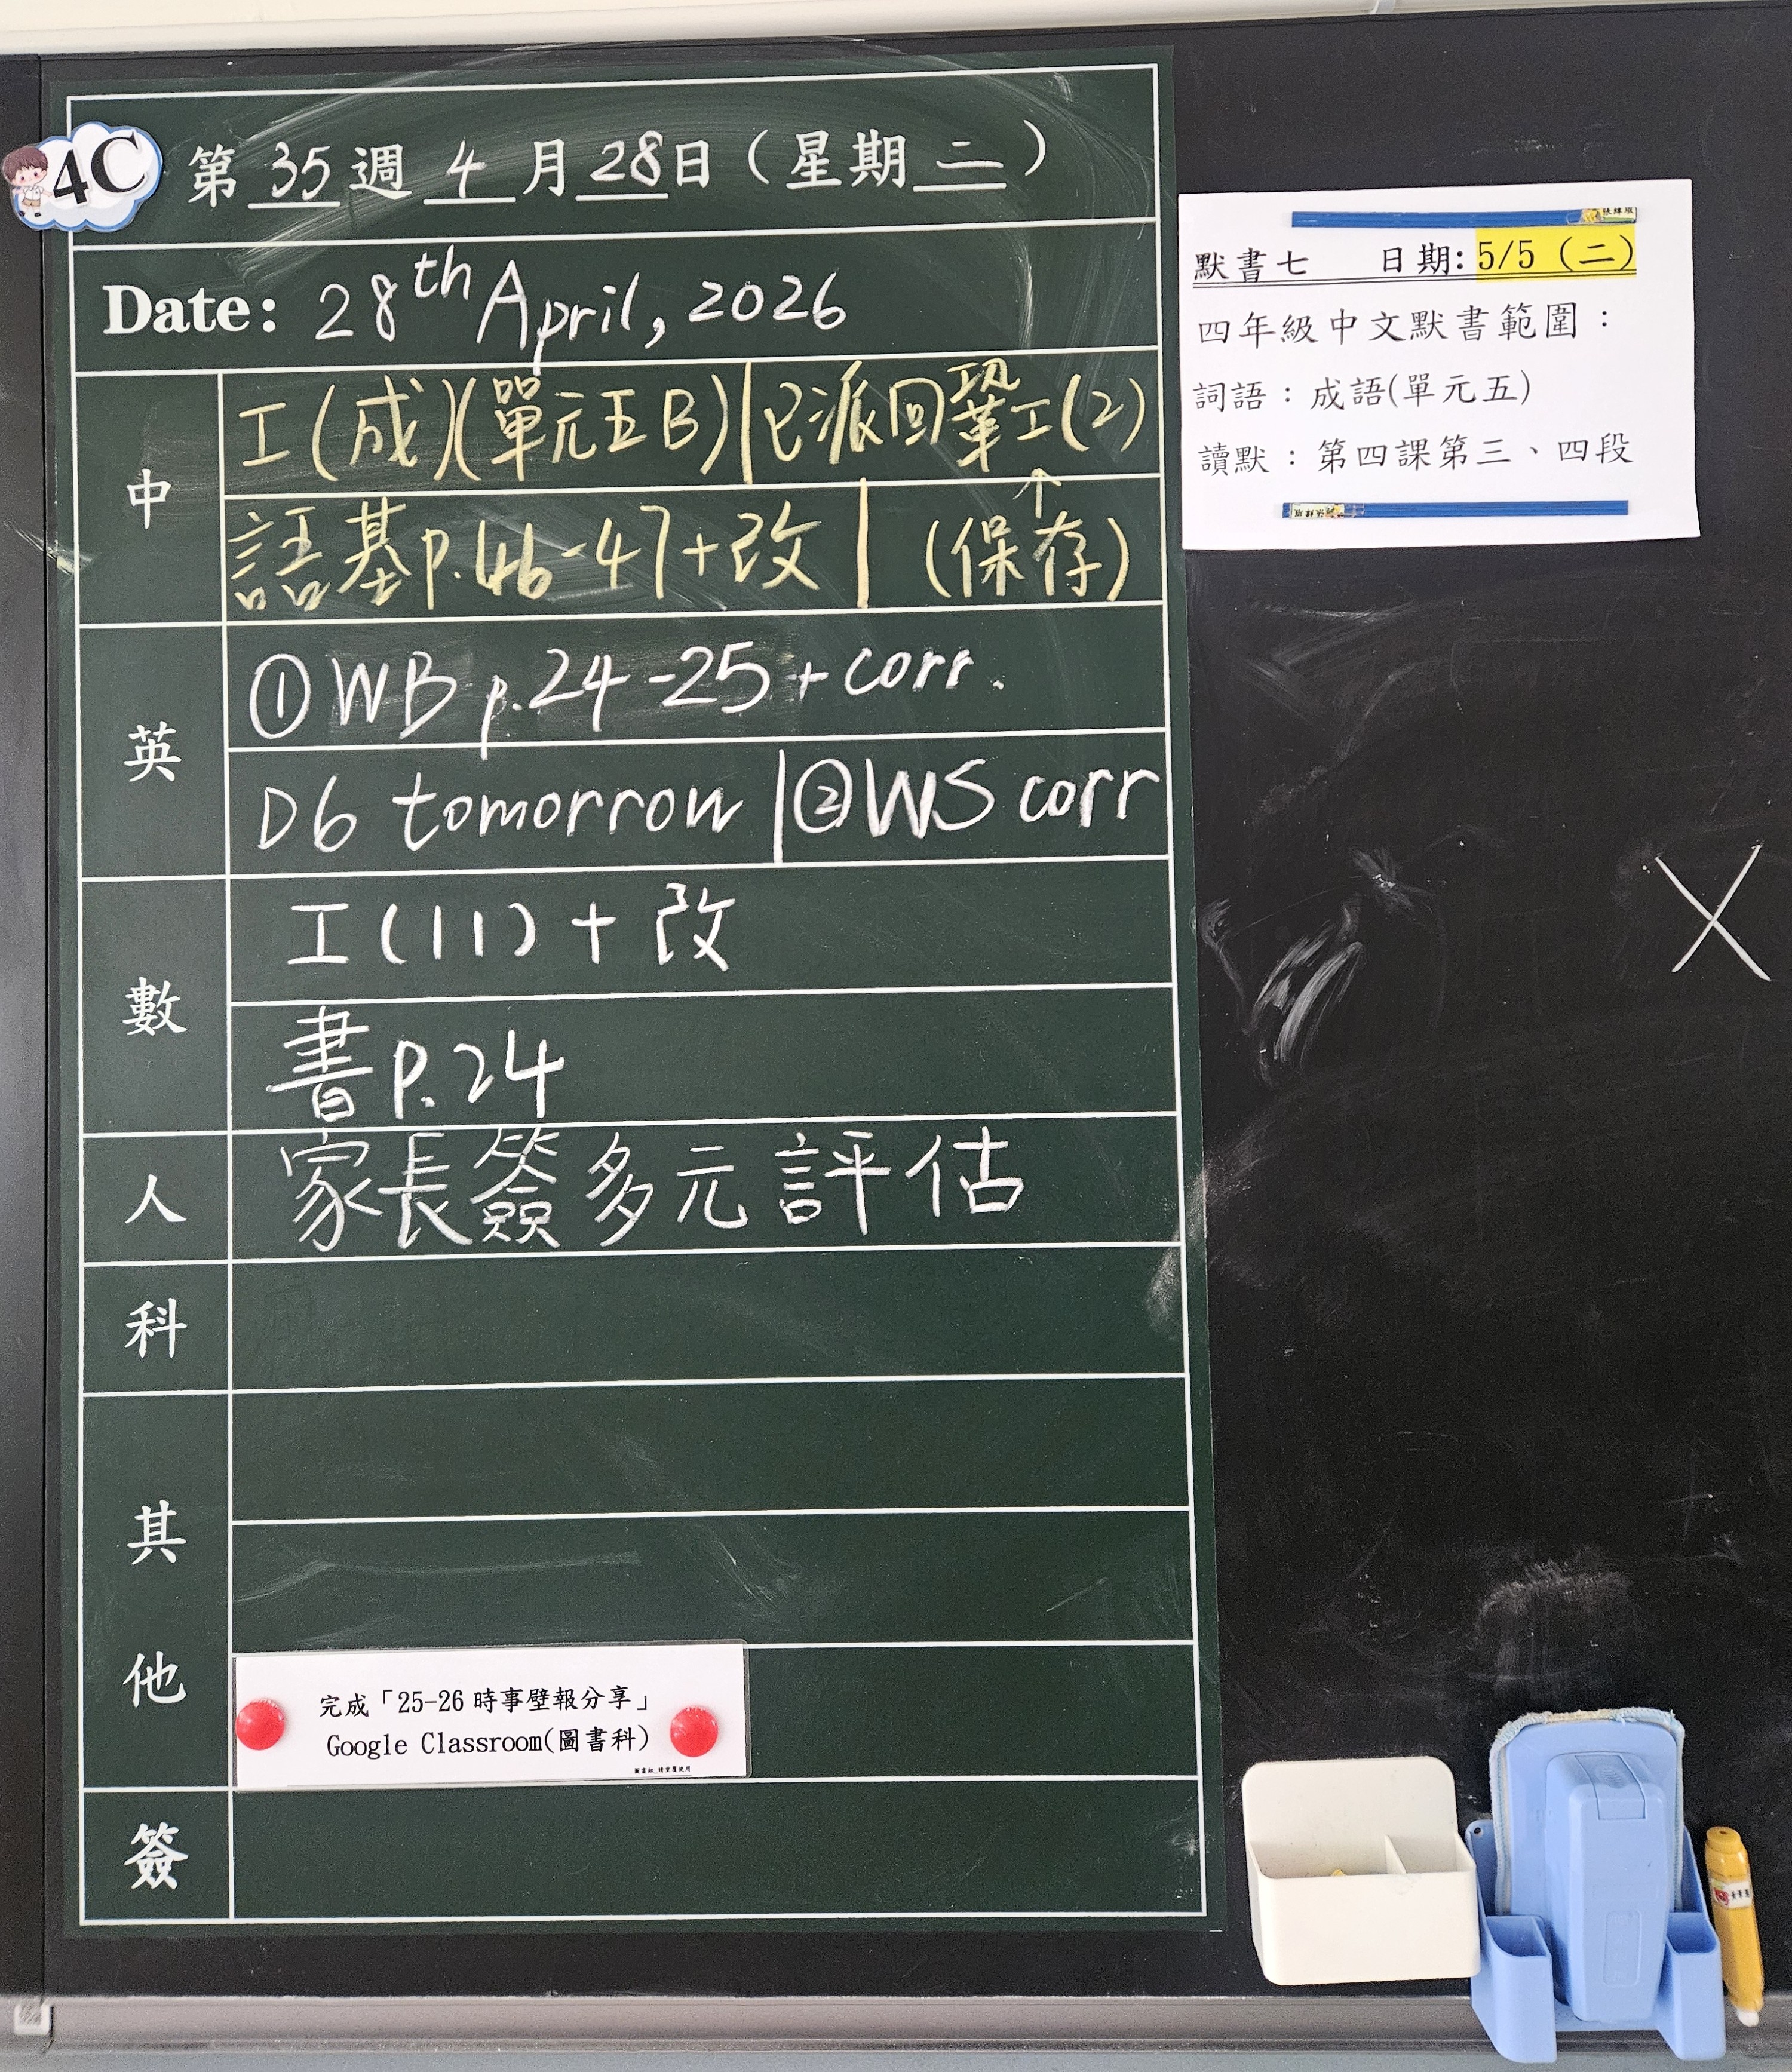 4C
第 35 週 4 月 28 日（星期 二）
Date: 28th April, 2026
中
工(成)(單元五B)|已派回鞏工(2)
語基p.46-47+改 | (保存)
英
①WB p.24-25+corr.
D6 tomorrow |②WS corr
數
工(11)+改
書p.24
人
家長簽多元評估
科
其他
完成「25-26 時事壁報分享」
Google Classroom(圖書科)
簽
默書七 日期:5/5 (二)
四年級中文默書範圍：
詞語：成語(單元五)
讀默：第四課第三、四段